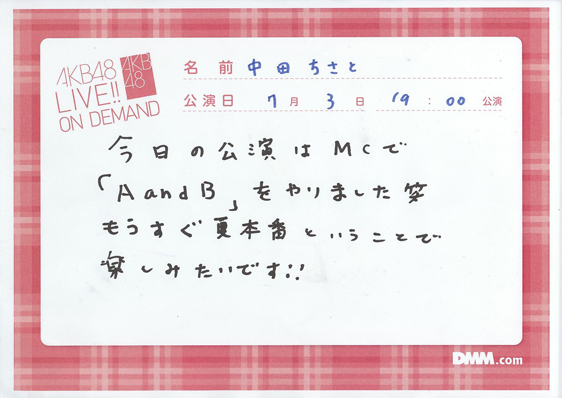 AKB48
LIVE!!
ON DEMAND
AKB
48
名前 中田ちさと
公演日 7月3日 19:00公演
今日の公演はMCで
「AandB」をやりました笑
もうすぐ夏本番ということで
楽しみたいです!!
DMM.com